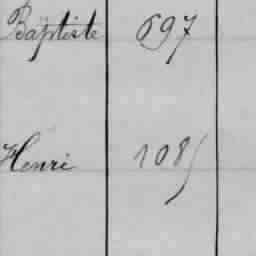 Baptiste 697
Henri 1085